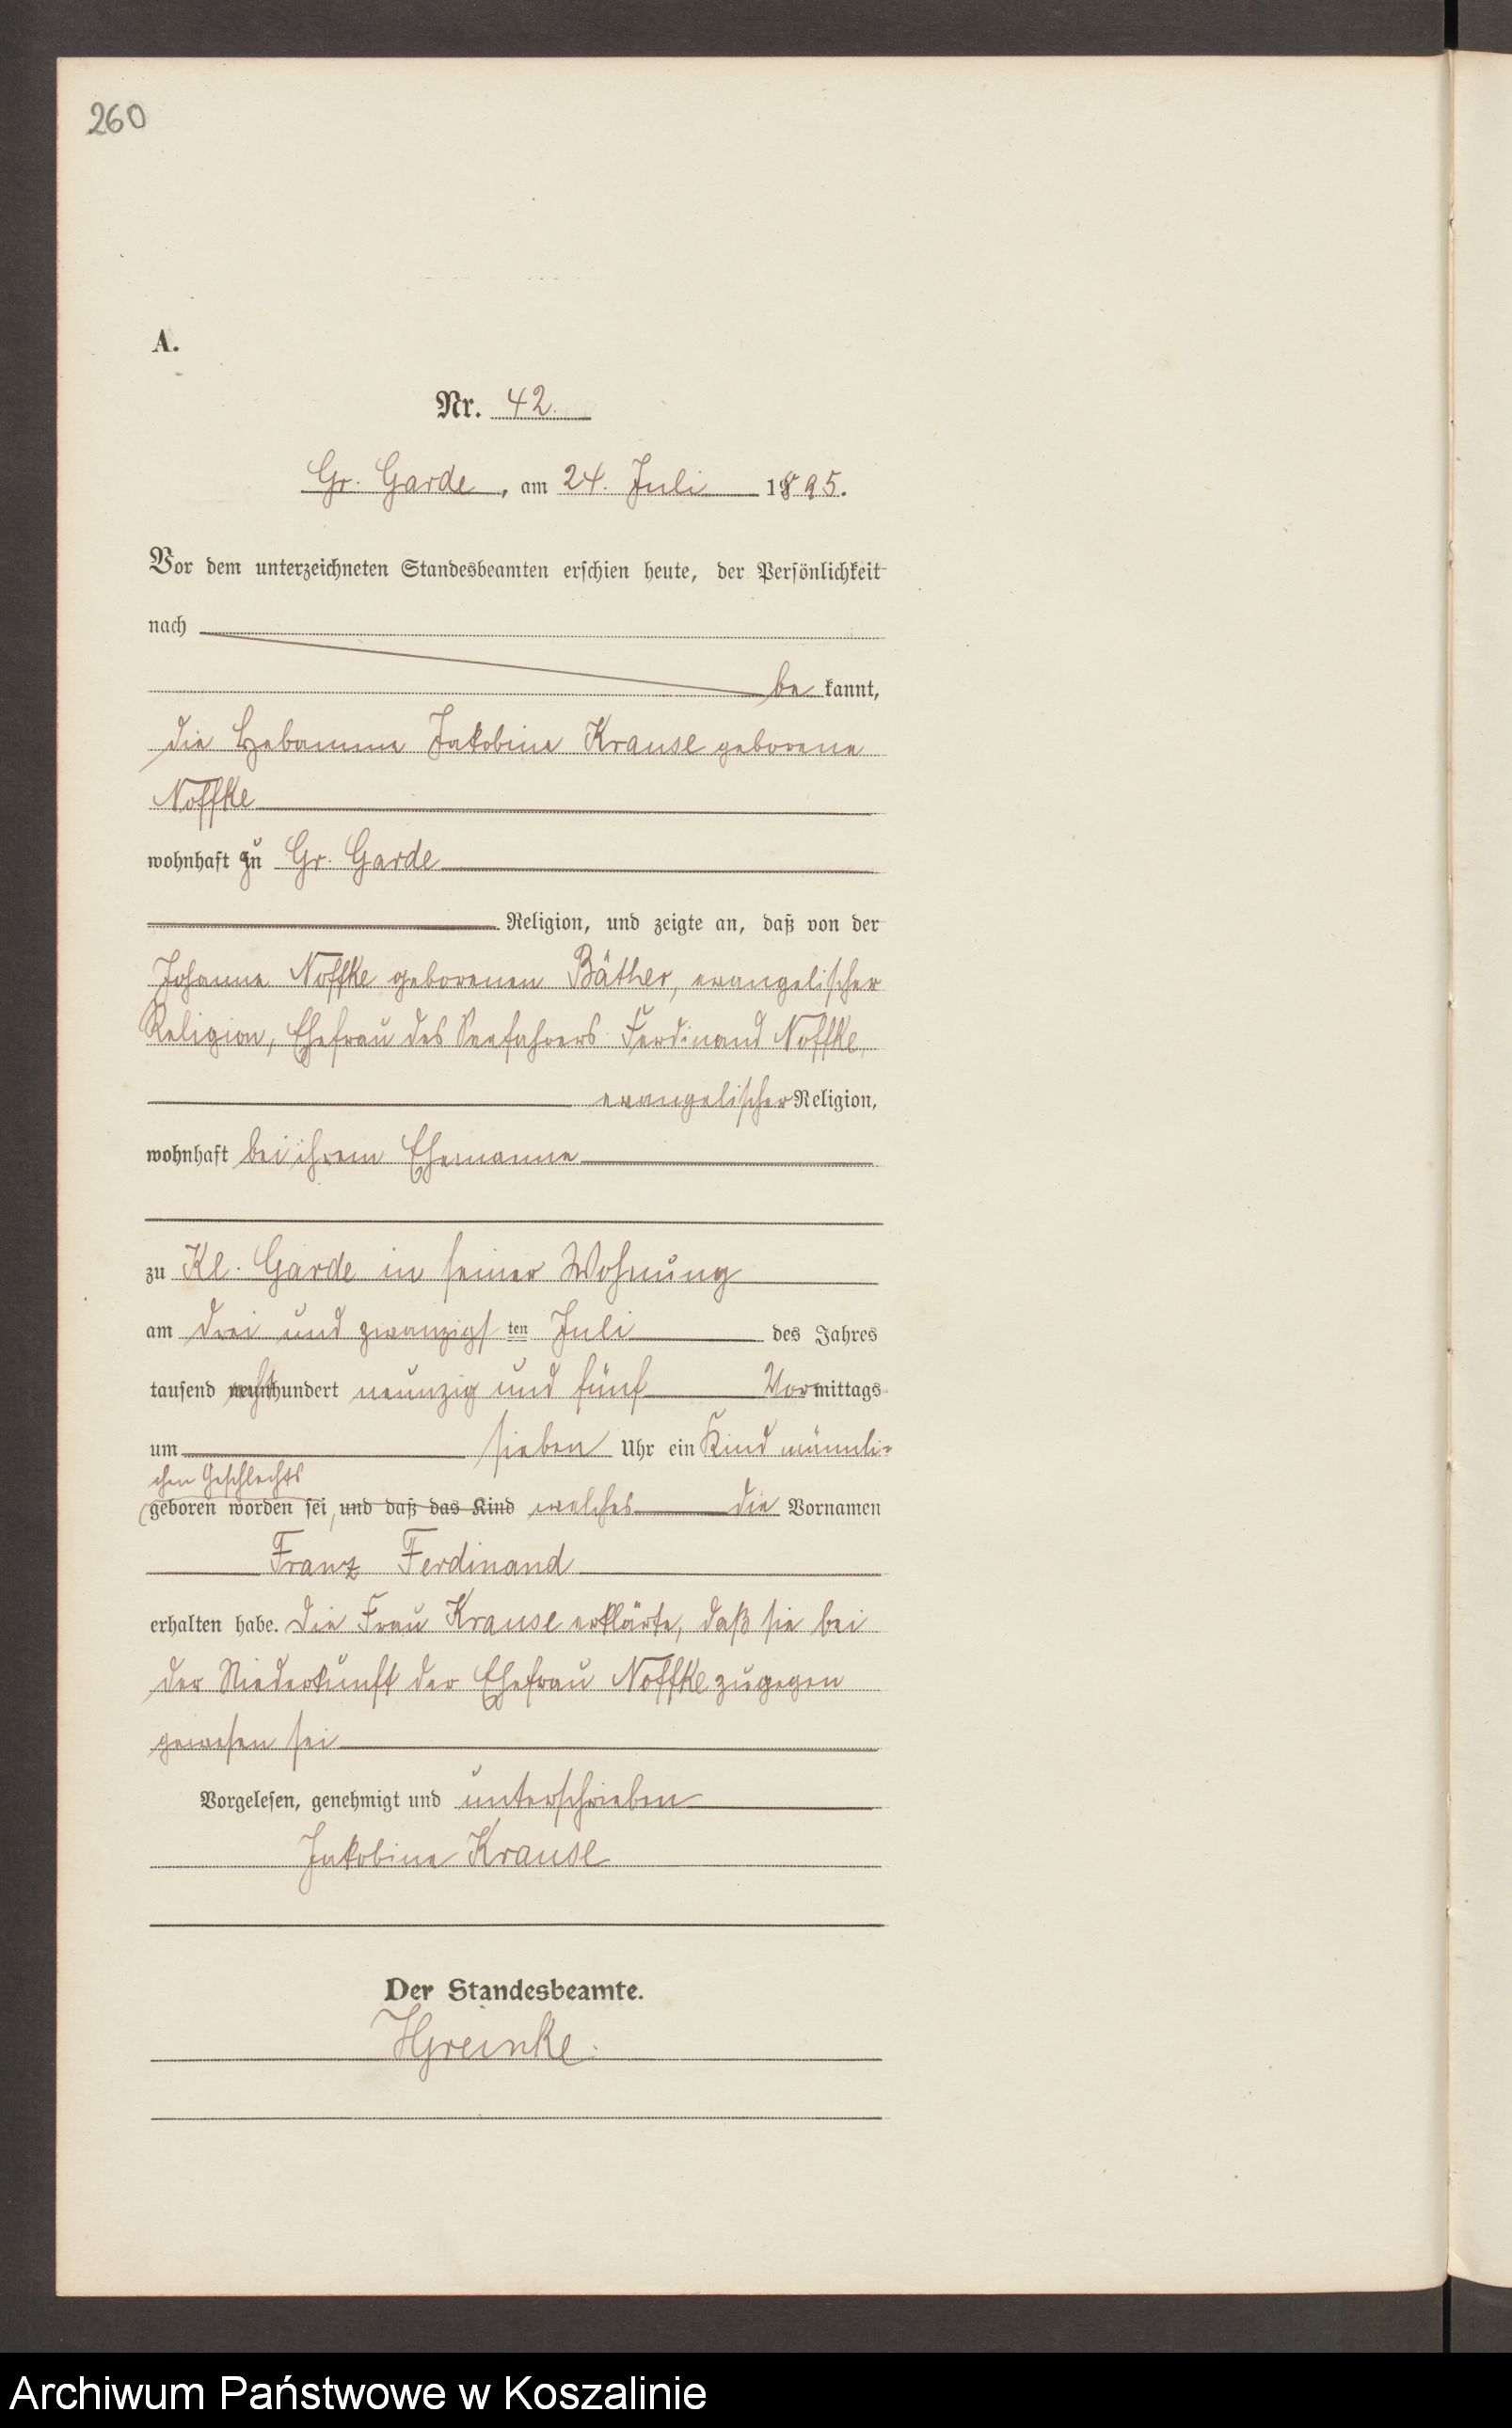 260
A.
Nr. 42.
Gr. Garde, am 24. Juli 1895.
Vor dem unterzeichneten Standesbeamten erschien heute, der Persönlichkeit
nach
be kannt,
die Hebamme Jakobine Krause geborene
Noffke
wohnhaft zu Gr. Garde
Religion, und zeigte an, daß von der
Johanne Noffke geborenen Bäther, evangelischer
Religion, Ehefrau des Seefahrers Ferdinand Noffke,
evangelischer Religion,
wohnhaft bei ihrem Ehemanne
zu Kl. Garde in seiner Wohnung
am drei und zwanzigsten Juli des Jahres
tausend achthundert neunzig und fünf Vormittags
um sieben Uhr ein Kind männli-
chen Geschlechts
geboren worden sei, und daß das Kind welches die Vornamen
Franz Ferdinand
erhalten habe. Die Frau Krause erklärte, daß sie bei
der Niederkunft der Ehefrau Noffke zugegen
gewesen sei
Vorgelesen, genehmigt und unterschrieben
Jakobine Krause
Der Standesbeamte.
HGreinke.
Archiwum Państwowe w Koszalinie